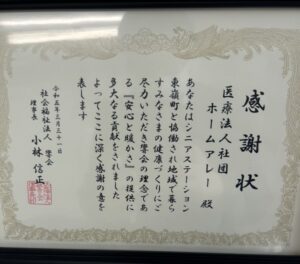 感謝状
医療法人社団
ホームアレー 殿
あなたはシニアステーション
東嶺町と協働され地域で暮ら
すみなさまの健康づくりにご
尽力いただき響会の理念であ
る『安心と暖かさ』の提供に
多大なる貢献をされました
よってここに深く感謝の意を
表します
令和五年三月三十一日
社会福祉法人 響会
理事長 小林 信正